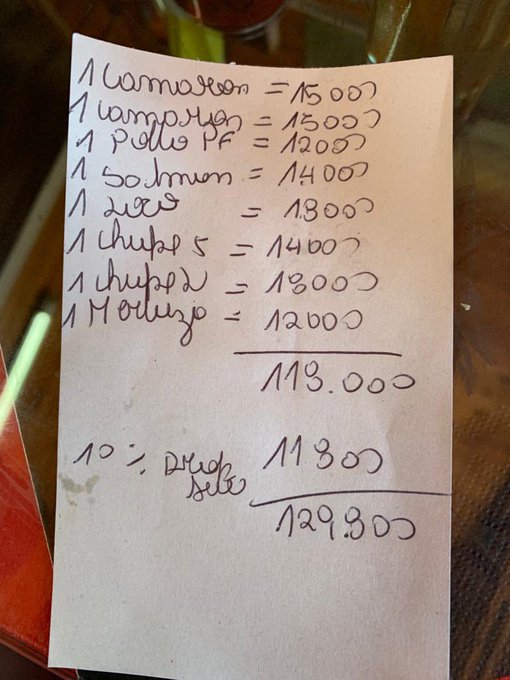 1 Camaron = 15000
1 camaron = 15000
1 Pollo PF = 12000
1 Salmon = 14.000
1 = 18000
1 chupe S = 14000
1 chupe = 18000
1 Merluza = 12000
118.000
10 % 11800
129.800